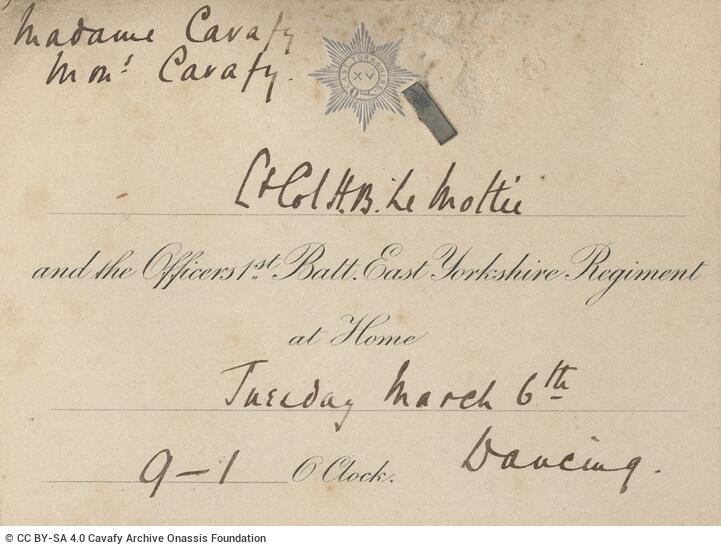 Madame Cavafy
Monˢ Cavafy.
EAST YORKSHIRE
XV
Lt Col H.B. Le Mottée
and the Officers 1st Batt. East Yorkshire Regiment
at Home
Tuesday March 6th
9-1 O'Clock. Dancing.
© CC BY-SA 4.0 Cavafy Archive Onassis Foundation